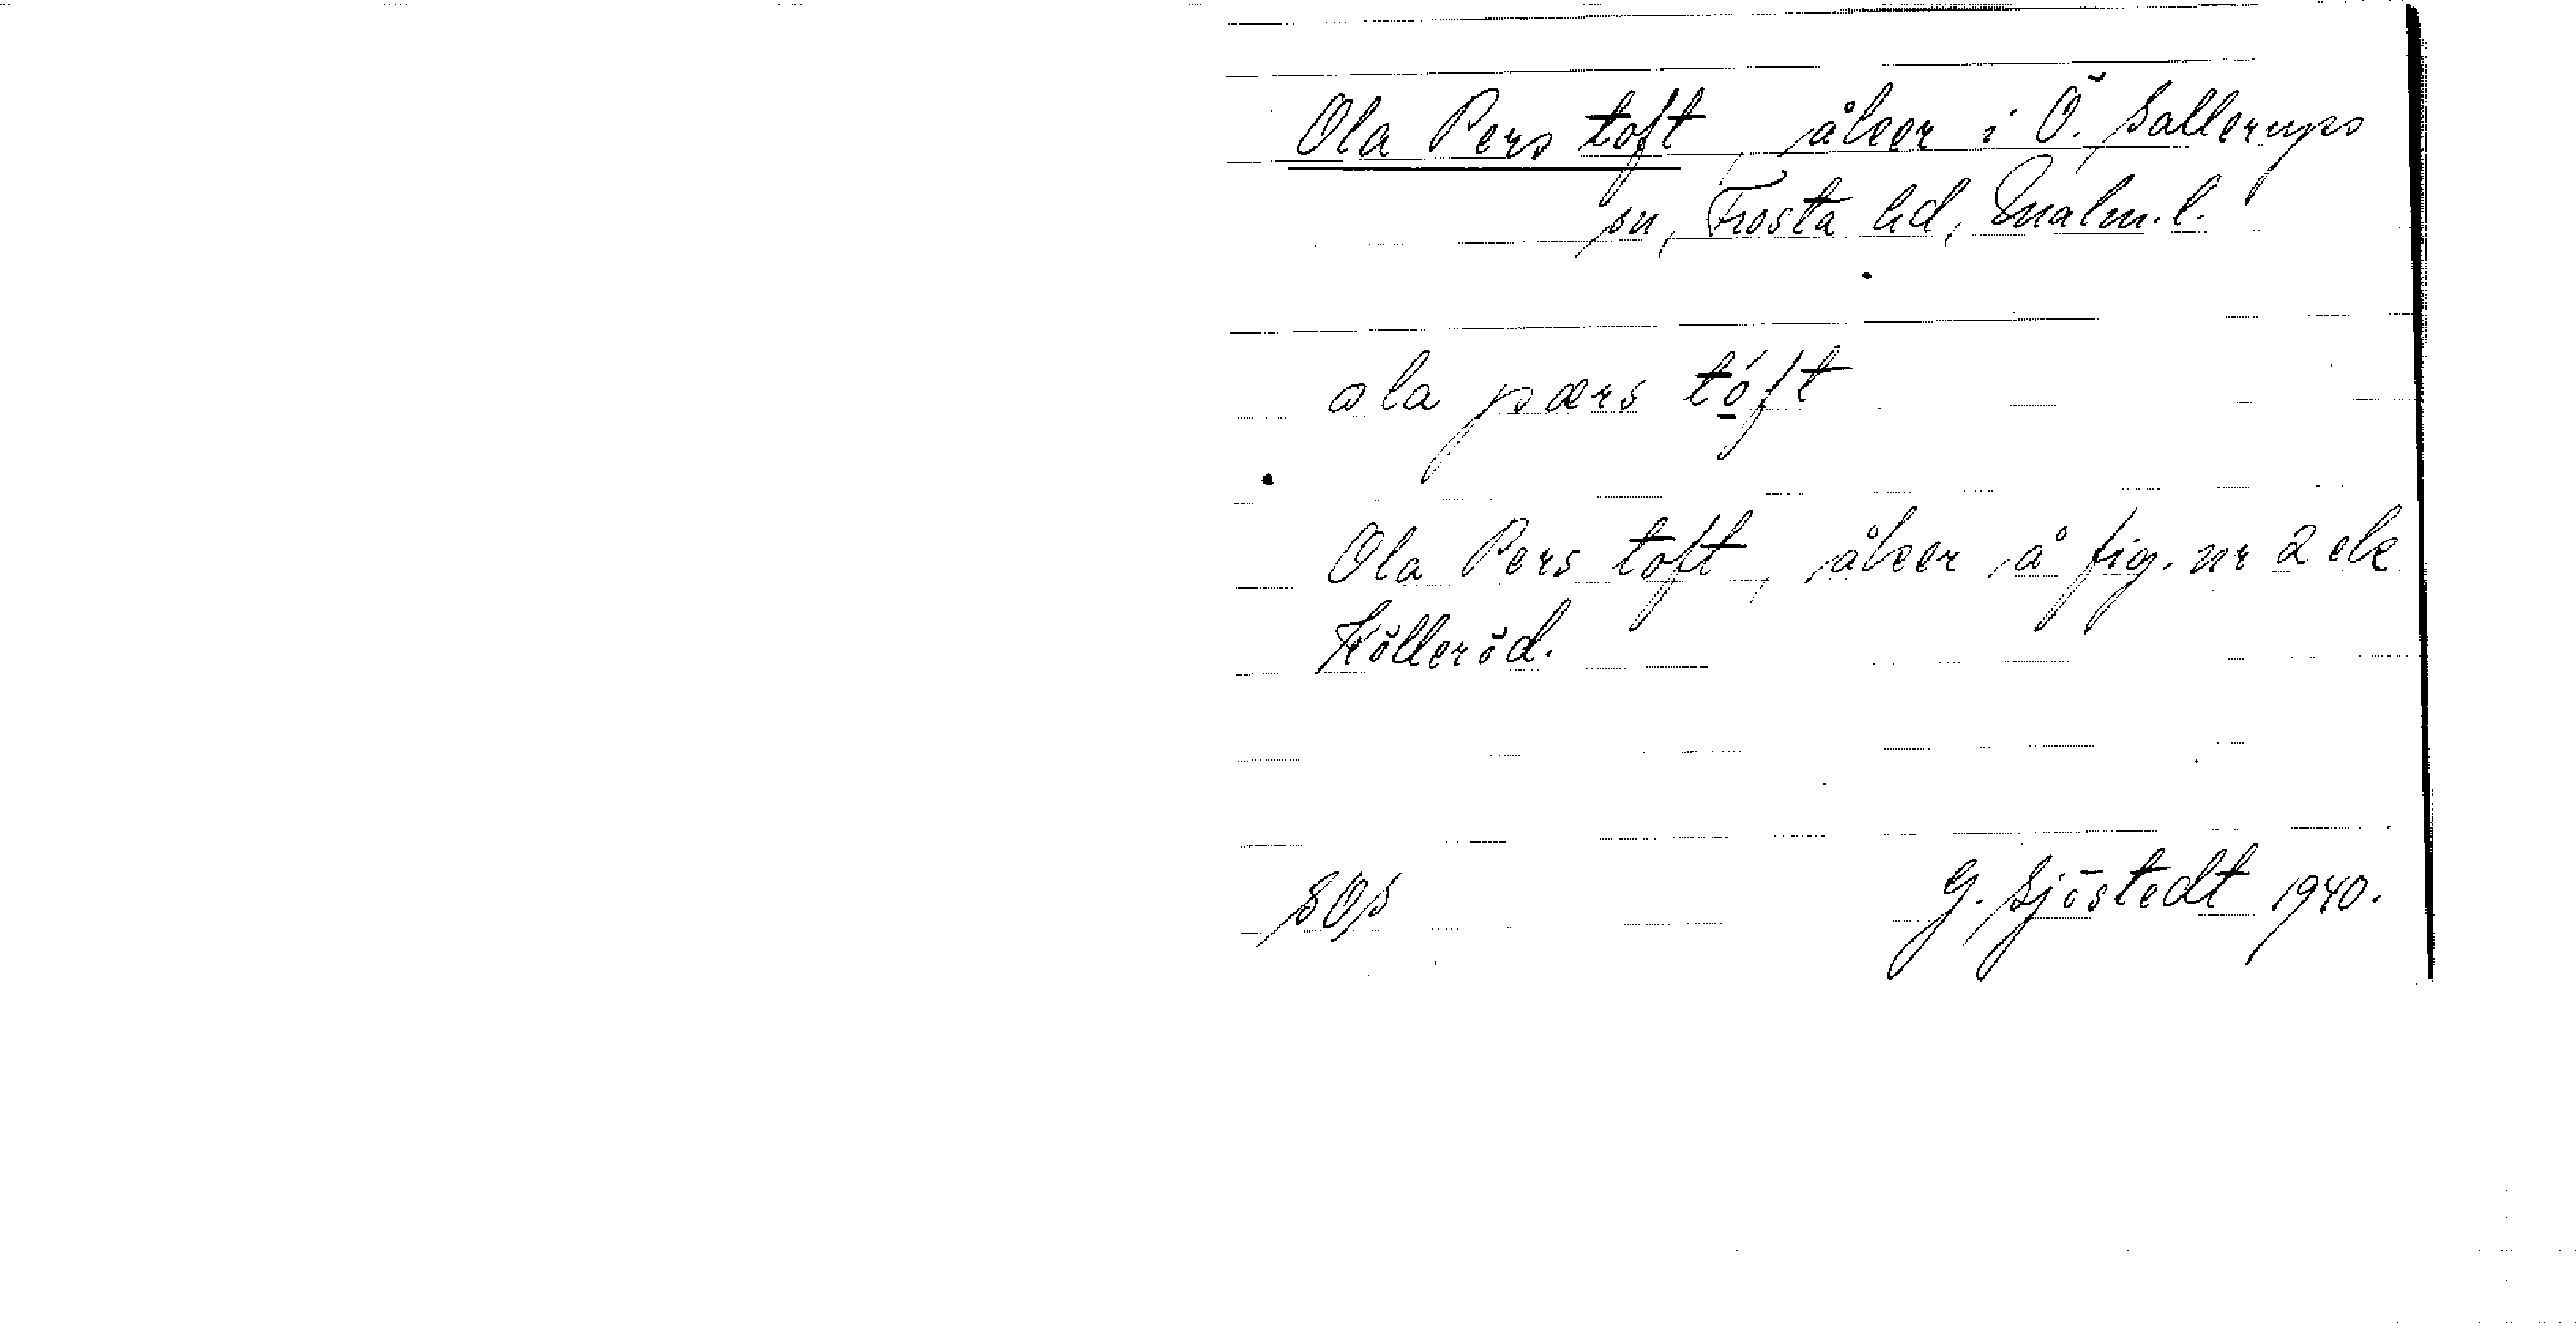 Ola Pers toft, åker i Ö. Sallerups
sn, Frosta hd, Malm. l.
ola pærs tóft
Ola Pers toft, åker å fig. nr 2 ek
Kölleröd.
SOS G. Sjöstedt 1940.